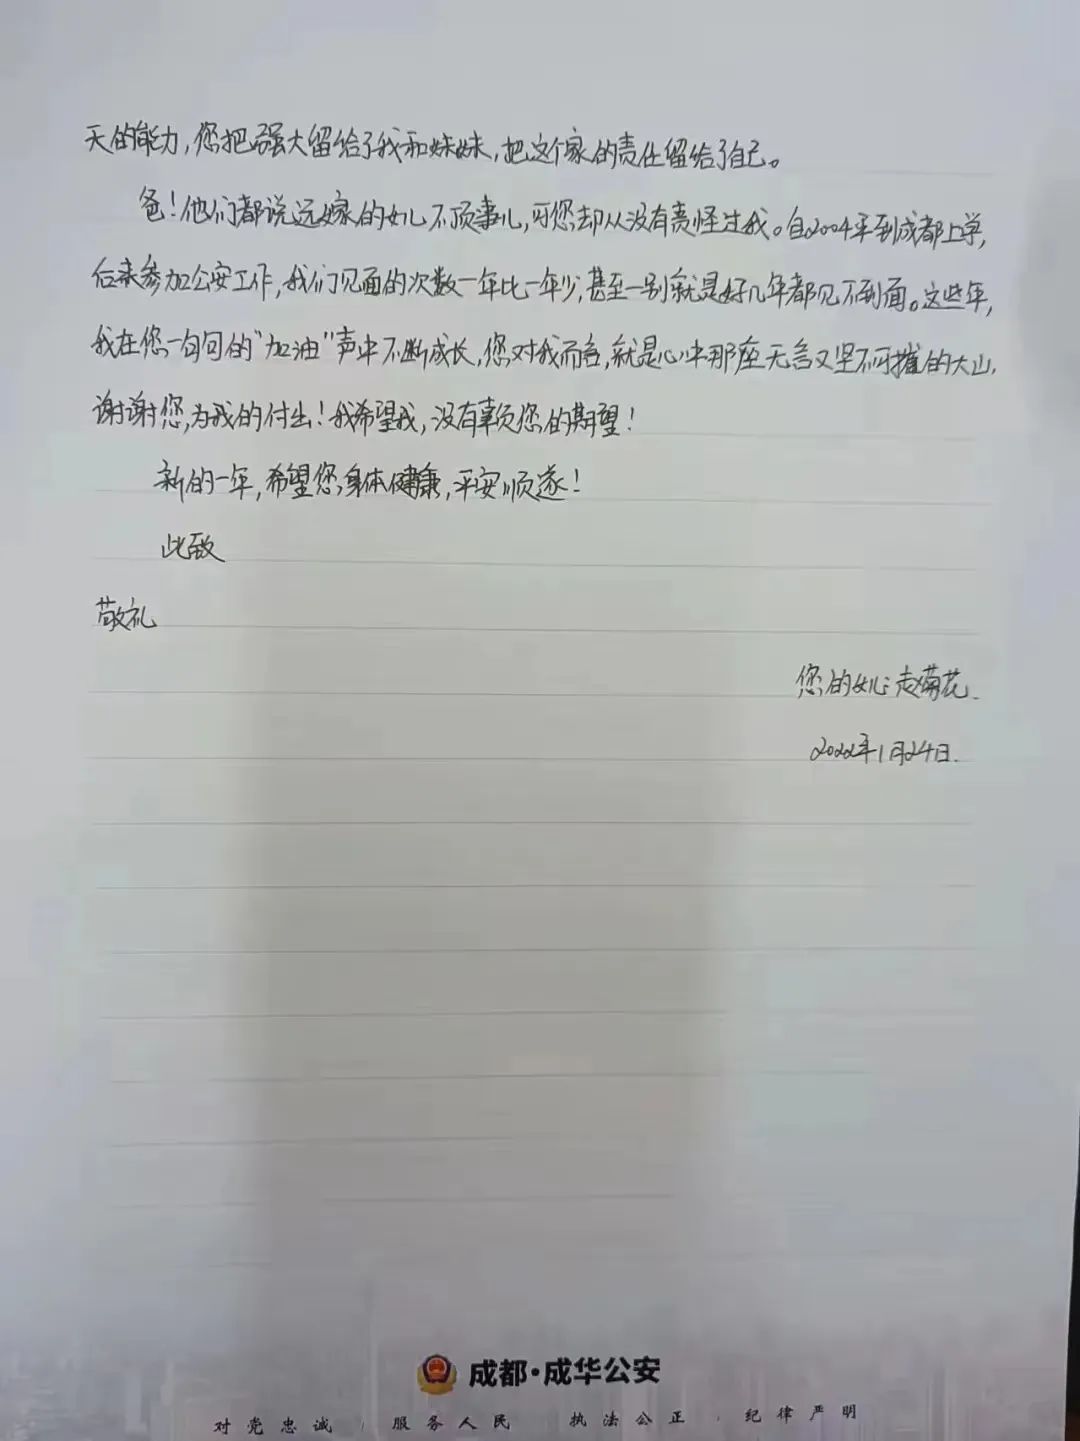 天的能力，您把强大留给了我和妹妹，把这个家的责任留给了自己。
爸！他们都说远嫁的女儿不顶事儿，可您却从没有责怪过我。自2004年到成都上学，
后来参加公安工作，我们见面的次数一年比一年少，甚至一别就是好几年都见不到面。这些年，
我在您一句句的“加油”声中不断成长，您对我而言，就是心中那座无言又坚不可摧的大山，
谢谢您，为我的付出！我希望我，没有辜负您的期望！
新的一年，希望您身体健康，平安顺遂！
此致
敬礼
您的女儿：赵菊花.
2022年1月24日.
成都·成华公安
对党忠诚 服务人民 执法公正 纪律严明